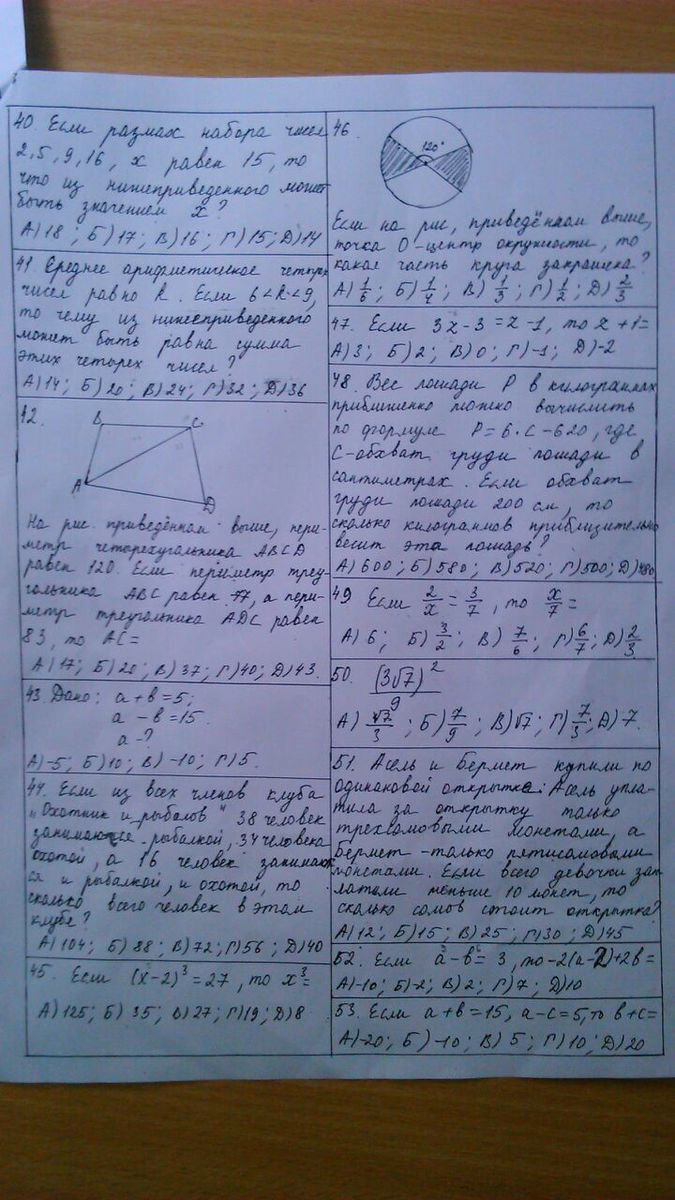 40. Если размах набора чисел
2, 5, 9, 16, x равен 15, то
что из нижеприведенного может
быть значением x?
А) 18; Б) 17; В) 16; Г) 15; Д) 14
41. Среднее арифметическое четырёх
чисел равно k. Если 6 < k < 9,
то чему из нижеприведенного
может быть равна сумма
этих четырех чисел?
А) 14; Б) 20; В) 24; Г) 32; Д) 36
42.
B C
A
D
На рис. приведённом выше, пери-
метр четырехугольника ABCD
равен 120. Если периметр треу-
гольника ABC равен 77, а пери-
метр треугольника ADC равен
83, то AC=
А) 17; Б) 20; В) 37; Г) 40; Д) 43.
43. Дано: a+b=5;
a-b=15.
a-?
А) -5; Б) 10; В) -10; Г) 5.
44. Если из всех членов клуба
"Охотник и рыболов" 38 человек
занимаются рыбалкой, 34 человека
охотой, а 16 человек занимают-
ся и рыбалкой, и охотой, то
сколько всего человек в этом
клубе?
А) 104; Б) 88; В) 72; Г) 56; Д) 40
45. Если (x-2)³=27, то x³=
А) 125; Б) 35; В) 27; Г) 19; Д) 8
46.
120°
Если на рис, приведённом выше,
точка O-центр окружности, то
какая часть круга закрашена?
А) 1/6; Б) 1/4; В) 1/3; Г) 1/2; Д) 2/3
47. Если 3z-3=z-1, то z+1=
А) 3; Б) 2; В) 0; Г) -1; Д) -2
48. Вес лошади P в килограммах
приближенно можно вычислить
по формуле P=6·C-620, где
C-обхват груди лошади в
сантиметрах. Если обхват
груди лошади 200 см, то
сколько килограммов приблизительно
весит эта лошадь?
А) 600; Б) 580; В) 520; Г) 500; Д) 480
49 Если 2/x = 3/7, то x/7 =
А) 6; Б) 3/2; В) 7/6; Г) 6/7; Д) 2/3
50. (3√7)²/9
А) √7/3; Б) 7/9; В) √7; Г) 7/3; Д) 7.
51. Асель и Бермет купили по
одинаковой открытке. Асель упла-
тила за открытку только
трехсомовыми монетами, а
Бермет - только пятисомовыми
монетами. Если всего девочки зап-
латили меньше 10 монет, то
сколько сомов стоит открытка?
А) 12; Б) 15; В) 25; Г) 30; Д) 45
52. Если a-b=3, то -2(a-2)+2b=
А) -10; Б) -2; В) 2; Г) 7; Д) 10
53. Если a+b=15, a-c=5, то b+c=
А) -20; Б) -10; В) 5; Г) 10; Д) 20